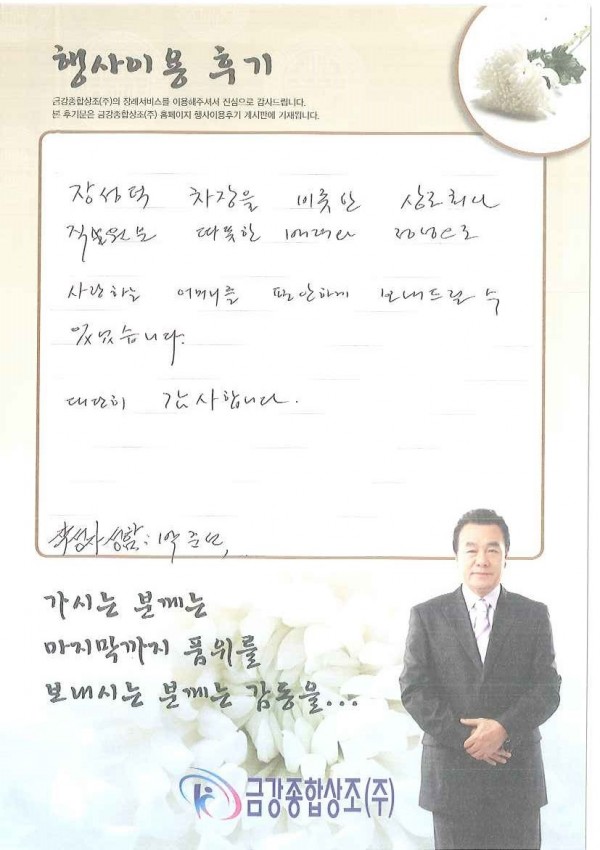 행사이용 후기
금강종합상조(주)의 장례서비스를 이용해주셔서 진심으로 감사드립니다.
본 후기문은 금강종합상조(주) 홈페이지 행사이용후기 게시판에 기재됩니다.
장성덕 차장을 비롯한 상조회사
직원분 따뜻한 배려와 으로
사랑하는 어머니를 편안하게 보내드릴 수
있었습니다.
대단히 감사합니다.
작성자 성함:
가시는 분께는
마지막까지 품위를
보내시는 분께는 감동을...
금강종합상조(주)